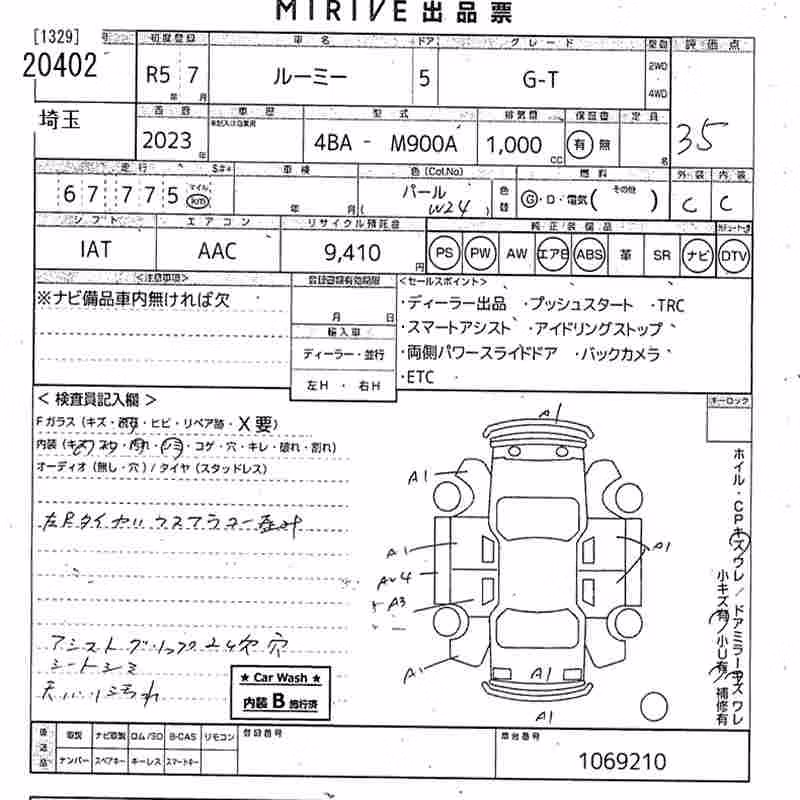 MIRIVE 出品票
[1329] 初度登録 車名 ドア グレード 駆動 評価点
20402 R5 7 ルーミー 5 G-T 2WD 4WD 35
年 月
埼玉 車歴 型式 排気量 保証書 定員
2023年 4BA - M900A 1,000cc 有 無 名
走行 車検 色(Col.No) 燃料 外装 内装
67775 マイル km 年 月 パール W24 色替 G・D・電気( その他 ) C C
シフト エアコン リサイクル預託金 純正/装備品
IAT AAC 9,410円 PS PW AW エアB ABS 革 SR ナビ DTV
<注意事項> <セールスポイント>
※ナビ備品車内無ければ欠
月 日
輸入車
ディーラー・並行
左H ・ 右H
・ディーラー出品 ・プッシュスタート ・TRC
・スマートアシスト ・アイドリングストップ
・両側パワースライドドア ・バックカメラ
・ETC
<検査員記入欄> キーロック
Fガラス(キズ・ ・ヒビ・リペア跡・X要)
内装(キズ・ ・シミ・コゲ・穴・キレ・破れ・割れ)
オーディオ(無し・穴)/タイヤ(スタッドレス)
アシストグリップ 穴
シートシミ
天バリ汚れ
★ Car Wash ★
内装 B 施行済
A1
A1
A1
A1
A3
A1
A1
A1
ホイル・CPキズワレ/ドアミラーキズワレ
小キズ有/小U有/補修有
後送品 取説 ナビ取説 ロム/SD B-CAS リモコン 登録番号 車台番号
ナンバー スペアキー キーレス スマートキー 1069210